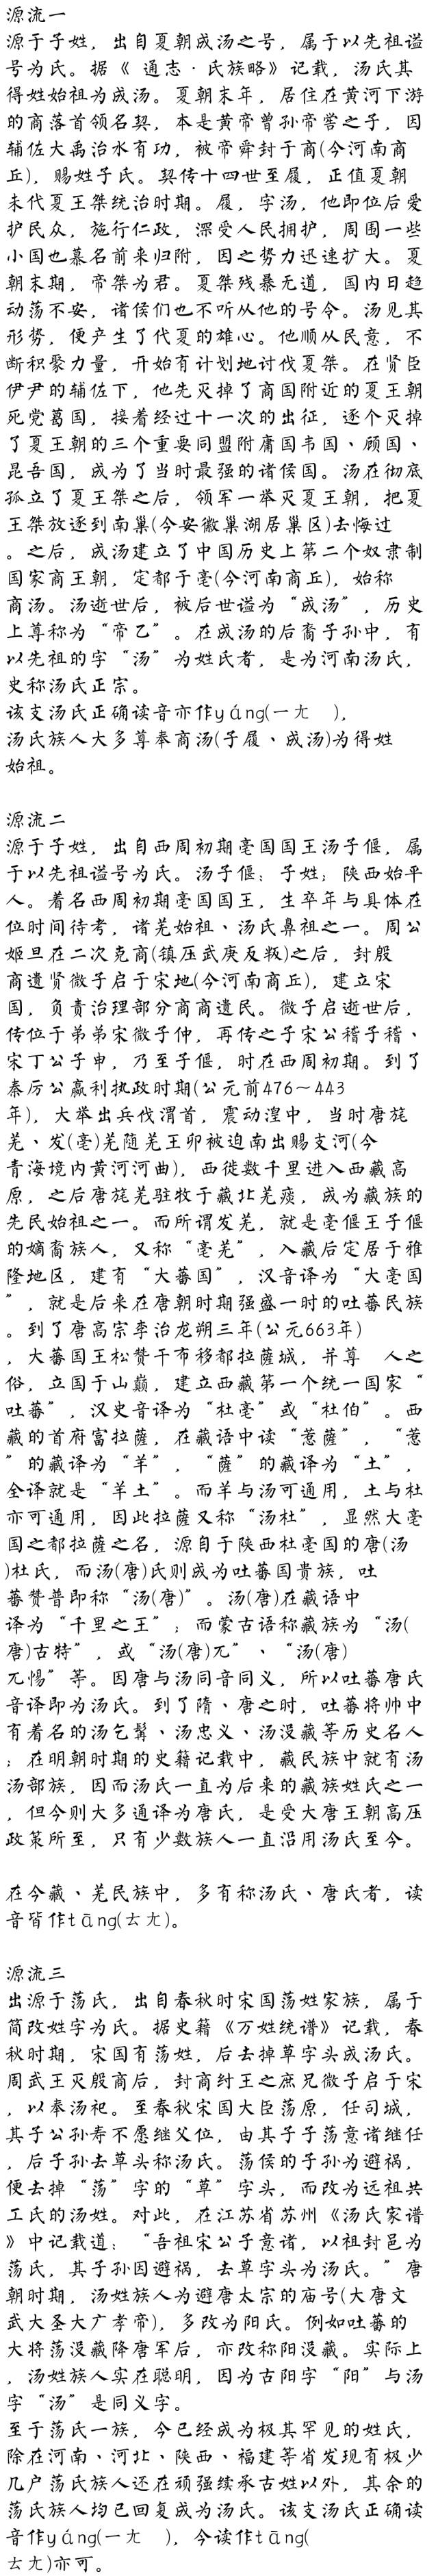 源流一
源于子姓，出自夏朝成汤之号，属于以先祖谥
号为氏。据《 通志·氏族略》记载，汤氏其
得姓始祖为成汤。夏朝末年，居住在黄河下游
的商落首领名契，本是黄帝曾孙帝喾之子，因
辅佐大禹治水有功，被帝舜封于商(今河南商
丘)，赐姓子氏。契传十四世至履，正值夏朝
末代夏王桀统治时期。履，字汤，他即位后爱
护民众，施行仁政，深受人民拥护，周围一些
小国也慕名前来归附，因之势力迅速扩大。夏
朝末期，帝桀为君。夏桀残暴无道，国内日趋
动荡不安，诸侯们也不听从他的号令。汤见其
形势，便产生了代夏的雄心。他顺从民意，不
断积聚力量，开始有计划地讨伐夏桀。在贤臣
伊尹的辅佐下，他先灭掉了商国附近的夏王朝
死党葛国，接着经过十一次的出征，逐个灭掉
了夏王朝的三个重要同盟附庸国韦国、顾国、
昆吾国，成为了当时最强的诸侯国。汤在彻底
孤立了夏王桀之后，领军一举灭夏王朝，把夏
王桀放逐到南巢(今安徽巢湖居巢区)去悔过
。之后，成汤建立了中国历史上第二个奴隶制
国家商王朝，定都于亳(今河南商丘)，始称
商汤。汤逝世后，被后世谥为“成汤”，历史
上尊称为“帝乙”。在成汤的后裔子孙中，有
以先祖的字“汤”为姓氏者，是为河南汤氏，
史称汤氏正宗。
该支汤氏正确读音亦作yáng(一ㄤ　)，
汤氏族人大多尊奉商汤(子履、成汤)为得姓
始祖。

源流二
源于子姓，出自西周初期亳国国王汤子偃，属
于以先祖谥号为氏。汤子偃：子姓；陕西始平
人。着名西周初期亳国国王，生卒年与具体在
位时间待考，诸羌始祖、汤氏鼻祖之一。周公
姬旦在二次克商(镇压武庚反叛)之后，封殷
商遗贤微子启于宋地(今河南商丘)，建立宋
国，负责治理部分商商遗民。微子启逝世后，
传位于弟弟宋微子仲，再传之子宋公稽子稽、
宋丁公子申，乃至子偃，时在西周初期。到了
秦厉公嬴利执政时期(公元前476～443
年)，大举出兵伐渭首，震动湟中，当时唐旄
羌、发(亳)羌随羌王卯被迫南出赐支河(今
青海境内黄河河曲)，西徙数千里进入西藏高
原，之后唐旄羌驻牧于藏北羌瘼，成为藏族的
先民始祖之一。而所谓发羌，就是亳偃王子偃
的嫡裔族人，又称“亳羌”，入藏后定居于雅
隆地区，建有“大蕃国”，汉音译为“大亳国
”，就是后来在唐朝时期强盛一时的吐蕃民族
。到了唐高宗李治龙朔三年(公元663年)
，大蕃国王松赞干布移都拉萨城，并尊　人之
俗，立国于山巅，建立西藏第一个统一国家“
吐蕃”，汉史音译为“杜亳”或“杜伯”。西
藏的首府富拉萨，在藏语中读“惹萨”，“惹
”的藏译为“羊”，“萨”的藏译为“土”，
全译就是“羊土”。而羊与汤可通用，土与杜
亦可通用，因此拉萨又称“汤杜”，显然大亳
国之都拉萨之名，源自于陕西杜亳国的唐(汤
)杜氏，而汤(唐)氏则成为吐蕃国贵族，吐
蕃赞普即称“汤(唐)”。汤(唐)在藏语中
译为“千里之王”；而蒙古语称藏族为“汤(
唐)古特”，或“汤(唐)兀”、“汤(唐)
兀惕”等。因唐与汤同音同义，所以吐蕃唐氏
音译即为汤氏。到了隋、唐之时，吐蕃将帅中
有着名的汤乞髯、汤忠义、汤没藏等历史名人
；在明朝时期的史籍记载中，藏民族中就有汤
汤部族，因而汤氏一直为后来的藏族姓氏之一
，但今则大多通译为唐氏，是受大唐王朝高压
政策所至，只有少数族人一直沿用汤氏至今。

在今藏、羌民族中，多有称汤氏、唐氏者，读
音皆作tāng(ㄊㄤ)。

源流三
出源于荡氏，出自春秋时宋国荡姓家族，属于
简改姓字为氏。据史籍《万姓统谱》记载，春
秋时期，宋国有荡姓，后去掉草字头成汤氏。
周武王灭殷商后，封商纣王之庶兄微子启于宋
，以奉汤祀。至春秋宋国大臣荡原，任司城，
其子公孙寿不愿继父位，由其子子荡意诸继任
，后子孙去草头称汤氏。荡侯的子孙为避祸，
便去掉“荡”字的“草”字头，而改为远祖共
工氏的汤姓。对此，在江苏省苏州《汤氏家谱
》中记载道：“吾祖宋公子意诸，以祖封邑为
荡氏，其子孙因避祸，去草字头为汤氏。”唐
朝时期，汤姓族人为避唐太宗的庙号(大唐文
武大圣大广孝帝)，多改为阳氏。例如吐蕃的
大将荡没藏降唐军后，亦改称阳没藏。实际上
，汤姓族人实在聪明，因为古阳字“阳”与汤
字“汤”是同义字。
至于荡氏一族，今已经成为极其罕见的姓氏，
除在河南、河北、陕西、福建等省发现有极少
几户荡氏族人还在顽强续承古姓以外，其余的
荡氏族人均已回复成为汤氏。该支汤氏正确读
音作yáng(一ㄤ　)，今读作tāng(
ㄊㄤ)亦可。